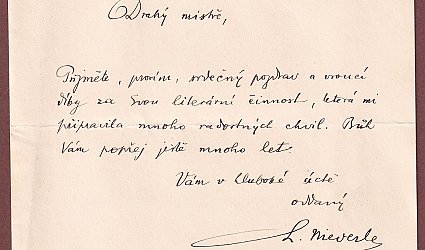 Drahý mistře,
Přijměte, prosím, srdečný pozdrav a vroucí
díky za Svou literární činnost, která mi
připravila mnoho radostných chvil. Bůh
Vám popřej ještě mnoho let.
Vám v hluboké úctě
oddaný
L. Nieverle